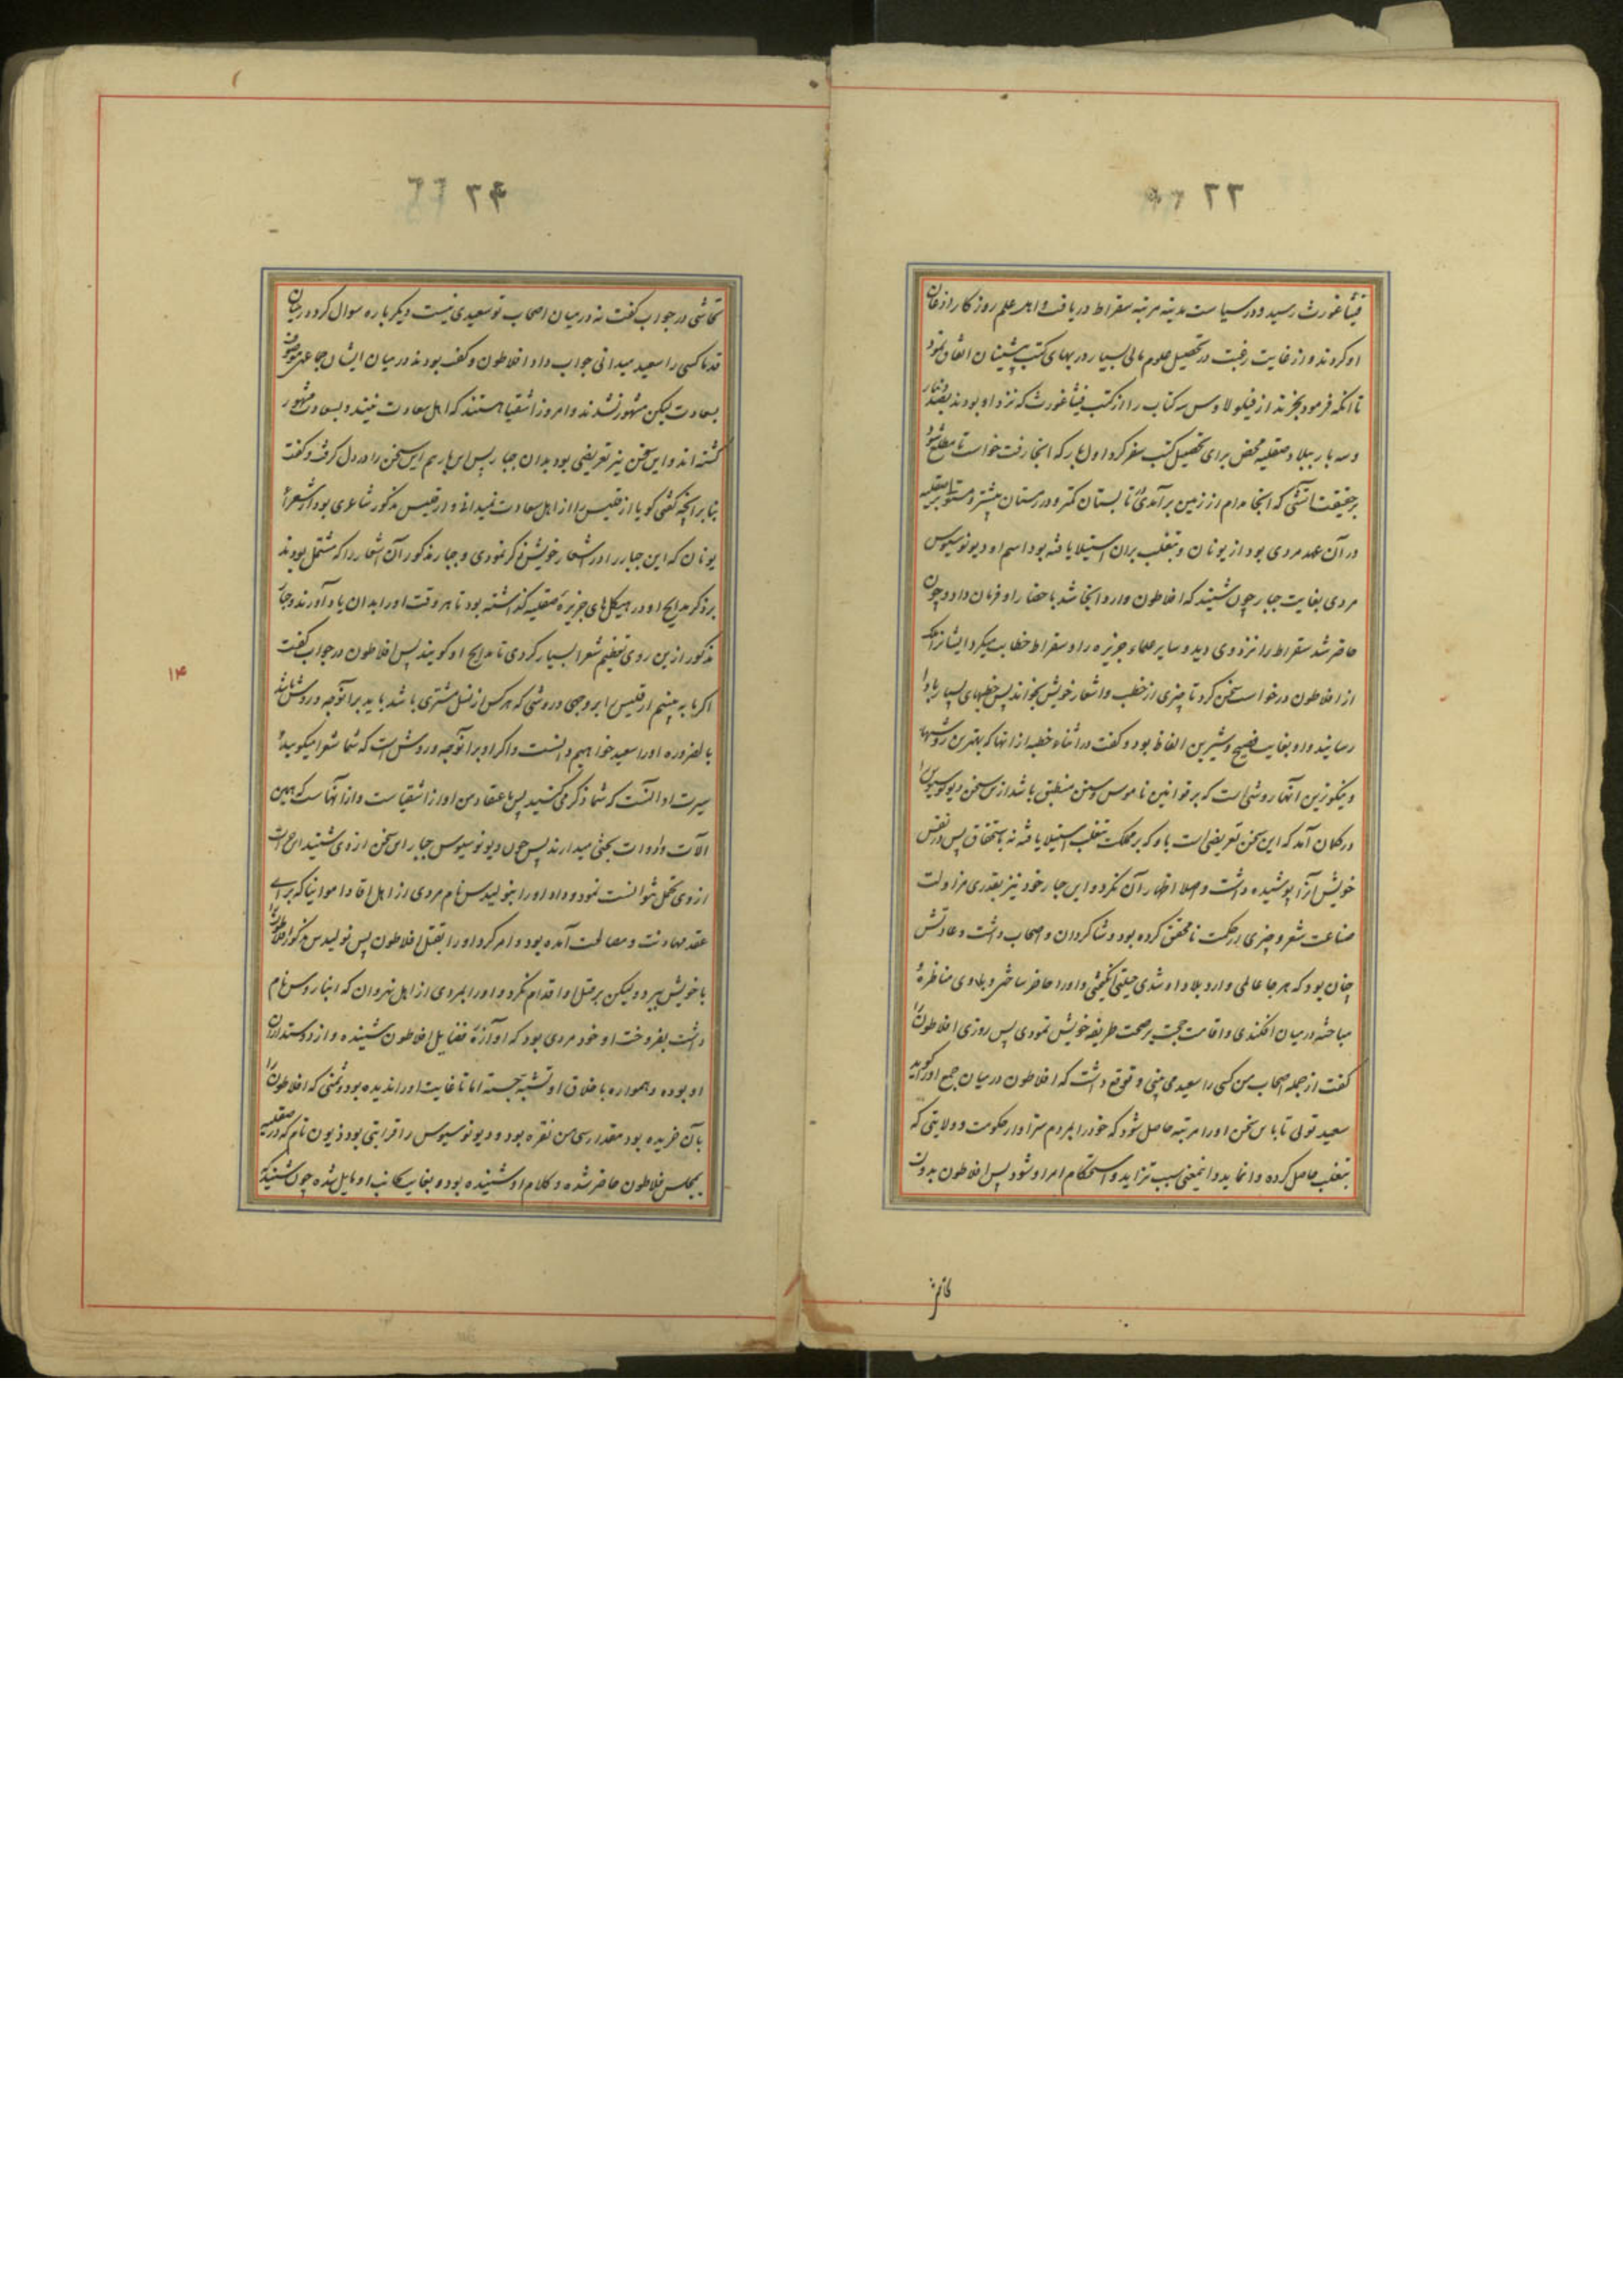 ۲۲
فیثاغورث رسید و در سیاست مدینه مرتبه سقراط دریافت و اهل علم روزگار اذعان
او کردند و از غایت رغبت در تحصیل علوم مالی بسیار در بهای کتب پیشینان انفاق نمود
تا آنکه فرمود بخرند از فیلولاوس سه کتاب را از کتب فیثاغورث که نزد او بودند بصد دینار
و سه بار ببلاد صقلیه محض برای تحصیل کتب سفر کرد اول بار که آنجا رفت خواست تا مطلع شود
بر حقیقت آتشی که آنجا مدام از زمین برآمدی تابستان کمتر و در زمستان بیشتر و مستولی بر صقلیه
در آن عهد مردی بود از یونان و بتغلب بران استیلا یافته بود اسم او دیونوسیوس
مردی بغایت جبار چون شنید که افلاطون وارد آنجا شد باحضار او فرمان داد و چون
حاضر شد سقراط را نزد وی دید و سایر علماء جزیره را و سقراط خطابت میکرد ایشانرا
از افلاطون درخواست سخن کرد تا چیزی از خطب و اشعار خویش بخواند پس خطبهای بسیار باو
رسانید و او بغایت فصیح و شیرین الفاظ بود و گفت در اثناء خطبه از انها که بهترین روشها
و نیکوترین آنها روشی است که بر قوانین ناموس و سنن منطبق باشد ازین سخن دیونوسیوس را
در گمان آمد که این سخن تعریضی است باو که بر مملکت بتغلب استیلا یافته نه باستحقاق پس در نفس
خویش آنرا پوشیده داشت و اصلا اظهار آن نکرد و این جبار خود نیز بقدری مزاولت
صناعت شعر و چیزی از حکمت نامحقق کرده بود و شاگردان و اصحاب داشت و عادتش
چنان بود که هر جا عالمی وارد بلاد او شدی حیلتی انگیختی و او را حاضر ساختی و با وی مناظره
مباحثه در میان افکندی و اقامت حجت بر صحت طریقه خویش نمودی پس روزی افلاطون را
گفت از جمله اصحاب من کسی را سعید می بینی و توقع داشت که افلاطون در میان جمع او را گوید
سعید توئی تا باین سخن او را مرتبه حاصل شود که خود را بمردم سزاوار حکومت و ولایتی که
بتغلب حاصل کرده وانماید و اینمعنی سبب تزاید و استحکام امر او شود پس افلاطون بدون
۲۴
تحاشی در جواب گفت نه در میان اصحاب تو سعیدی نیست دیگر باره سوال کرد در میان
قدما کسی را سعید میدانی جواب داد افلاطون و گفت بودند در میان ایشان جماعتی موصوف
بسعادت لیکن مشهور نشدند و امروز اشقیا هستند که اهل سعادت نیند و بسعادت مشهور
گشته اند و این سخن نیز تعریضی بود بدان جبار پس این بار هم این سخن را در دل گرفت و گفت
بنابر آنچه گفتی گویا ارقلیس را از اهل سعادت نمیدانی و ارقلیس مذکور شاعری بود از شعراء
یونان که این جبار را در اشعار خویش ذکر نمودی و جبار مذکور آن اشعار را که مشتمل بودند
بر ذکر مدایح او در هیکل های جزیره صقلیه گذاشته بود تا هر وقت او را بدان یاد آورند و جبار
مذکور ازین روی تعظیم شعرا بسیار کردی تا مدایح او گویند پس افلاطون در جواب گفت
اگر ما به بینیم ارقلیس را بر وجهی و روشی که هر کس از نسل مشتری باشد باید بر آنوجه و روش باشد
بالضروره او را سعید خواهیم دانست و اگر او بر آنوجه و روش است که شما شعرا میگویید
سیرت او آنست که شما ذکر می کنید پس باعتقاد من او از اشقیاست و از آنهاست که همین
آلات و ادوات بختی میدارند پس چون دیونوسیوس جبار این سخن از وی شنید این جرات
از وی تحمل نتوانست نمود و داد او را بنولیدس نام مردی از اهل اقادامونیا که برای
عقد مهادنت و مصالحت آمده بود و امر کرد او را بقتل افلاطون پس نولیدس مذکور افلاطون را
با خویش ببرد و لیکن بر قتل او اقدام نکرد و او را بمردی از اهل نیروان که انبارو س نام
داشت بفروخت او خود مردی بود که آوازه فضایل افلاطون شنیده و از دوستداران
او بوده و همواره باخلاق او تشبه جسته اما تا غایت او را ندیده بود و ثمنی که افلاطون را
بآن خریده بود مقدار سی من نقره بود و دیونوسیوس را قرابتی بود ذیون نام که در صقلیه
بمجلس فلاطون حاضر شده و کلام او شنیده بود و بغایت بجانب او مایل شده چون شنید که
۱۴